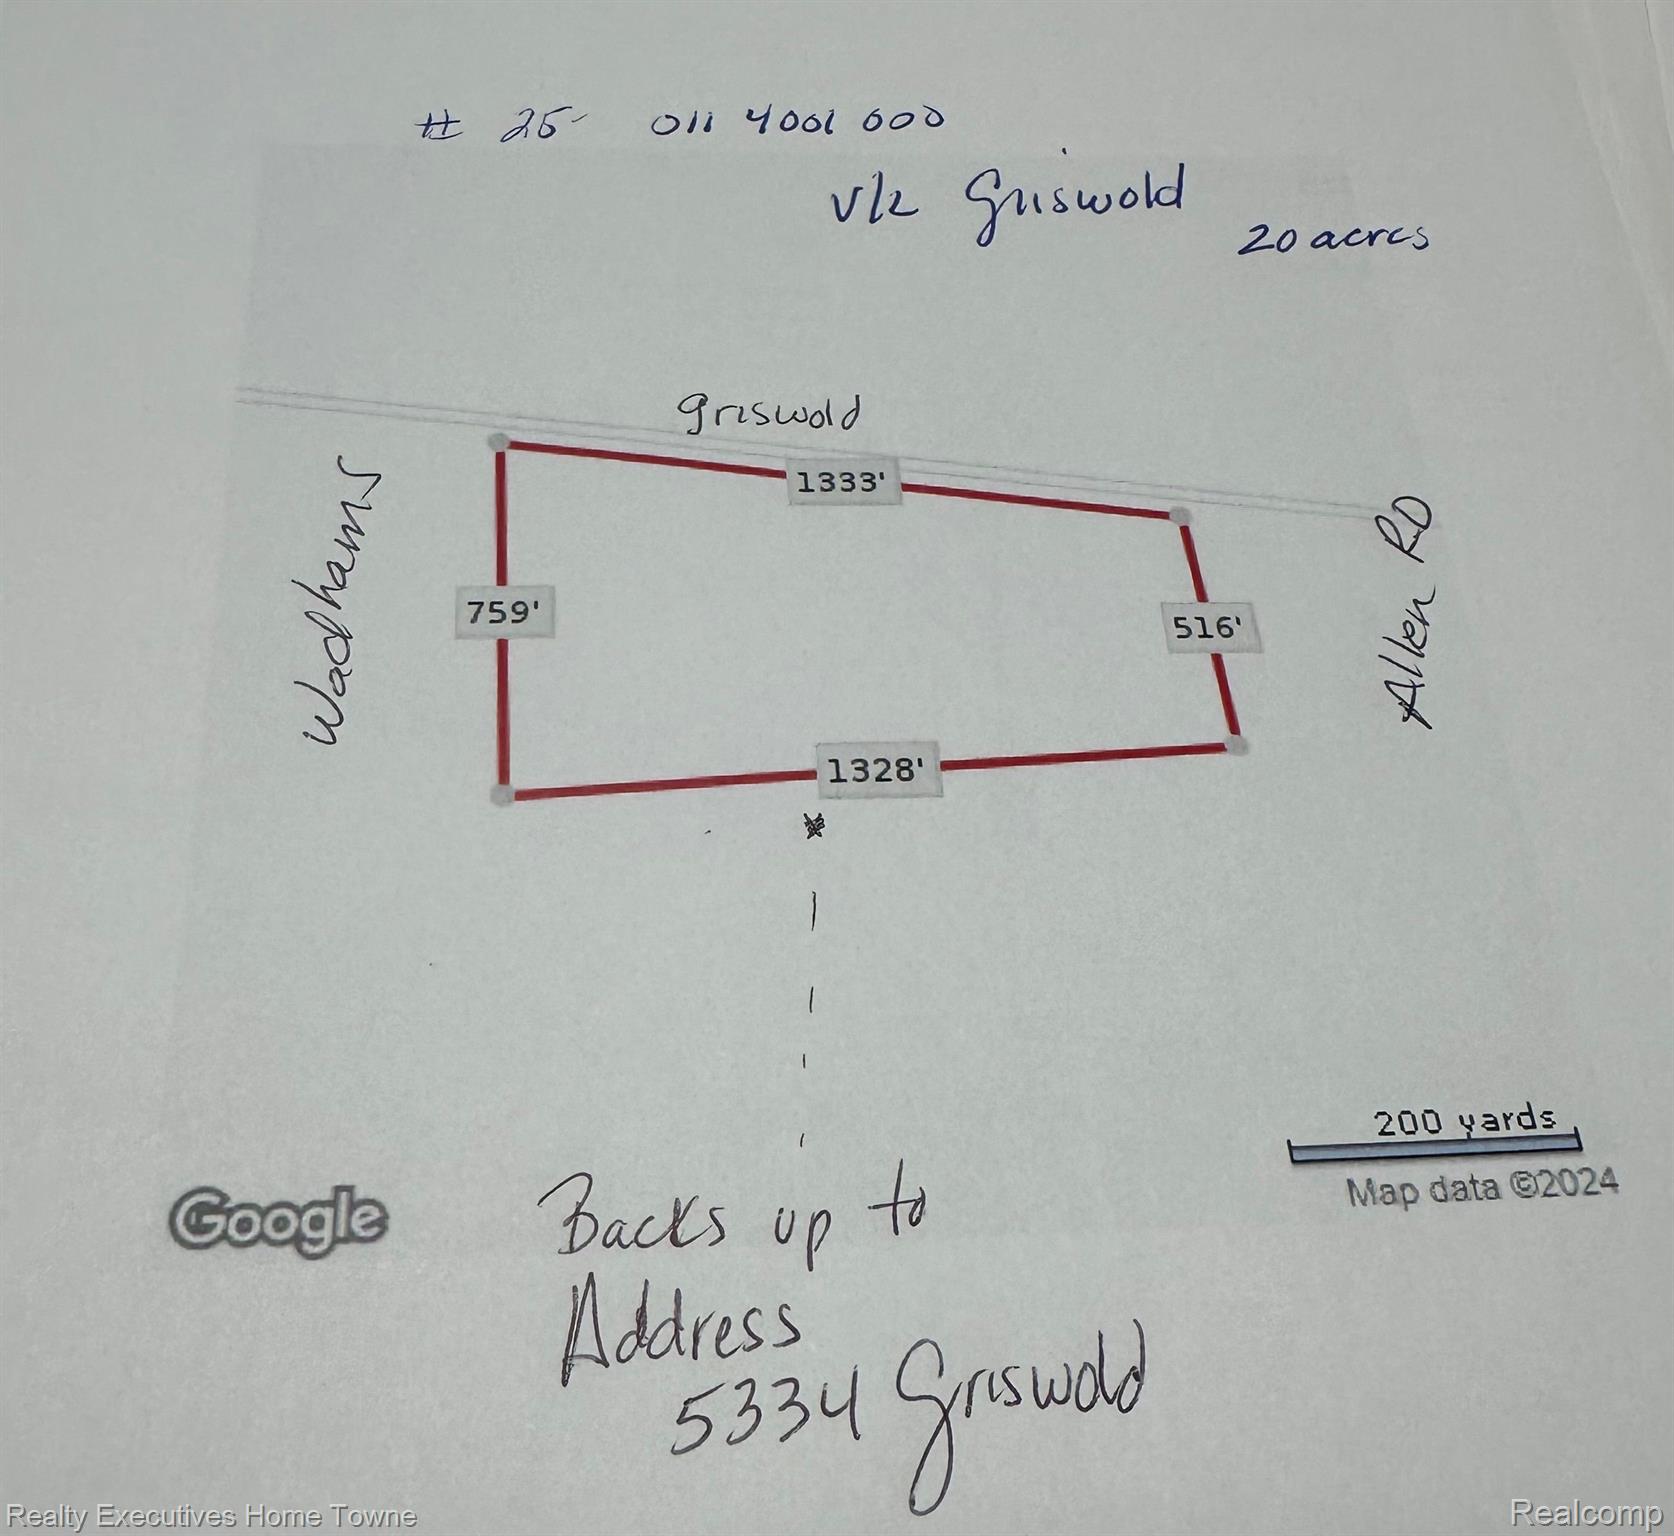 # 25- 011 4001 000
V/L Griswold
20 acres
Griswold
1333'
Wadhams
759'
516'
Allen RD
1328'
200 yards
Map data ©2024
Google
Backs up to
Address
5334 Griswold
Realty Executives Home Towne
Realcomp